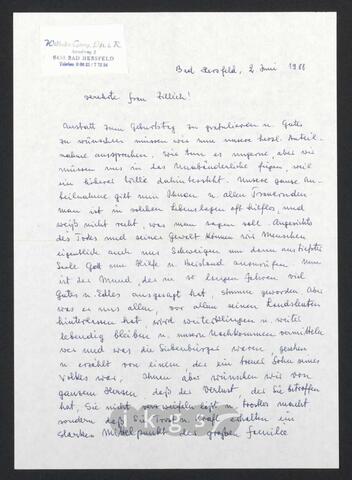 Wilhelm Georg, Dipl. i. R.
6430 BAD HERSFELD
Telefon 0 66 21 / 7 72 54
Bad Hersfeld, 2 Juni 1988
verehrte Frau Zillich!
Anstatt zum Geburtstag zu gratulieren u. Gutes
zu wünschen müssen wir nun unsere herzl. Anteil-
nahme aussprechen, wir tun es ungerne, aber wir
müssen uns in das Unabänderliche fügen, weil
ein höherer Wille dahintersteht. Unsere ganze An-
teilnahme gilt nun Ihnen u. allen Trauernden
man ist in solchen Lebenslagen oft hilflos, und
weiß nicht recht, was man sagen soll. Angesichts
des Todes und seiner Gewalt können wir Menschen
eigentlich auch nur Schweigen um dann aus tiefster
Seele Gott um Hilfe u. Beistand anzurufen. nun
ist der Mund, der in so langen Jahren viel
Gutes u. Edles ausgesagt hat, stumm geworden. Aber
was er uns allen, vor allem seinen Landsleuten
hinterlassen hat, wird weiterklingen u. weiter
lebendig bleiben u. unsern Nachkommen vermitteln
wer und was die Siebenbürger waren, gesehen
u. erzählt von einem, der ein treuer Sohn seines
Volkes war. Ihnen aber wünschen wir von
ganzem Herzen, daß der Verlust, der Sie betroffen
hat, Sie nicht verzweifeln läßt u. trostlos macht
sondern daß Sie Kraft erhalten ein
starker Mittelpunkt der großen Familie
ikgs